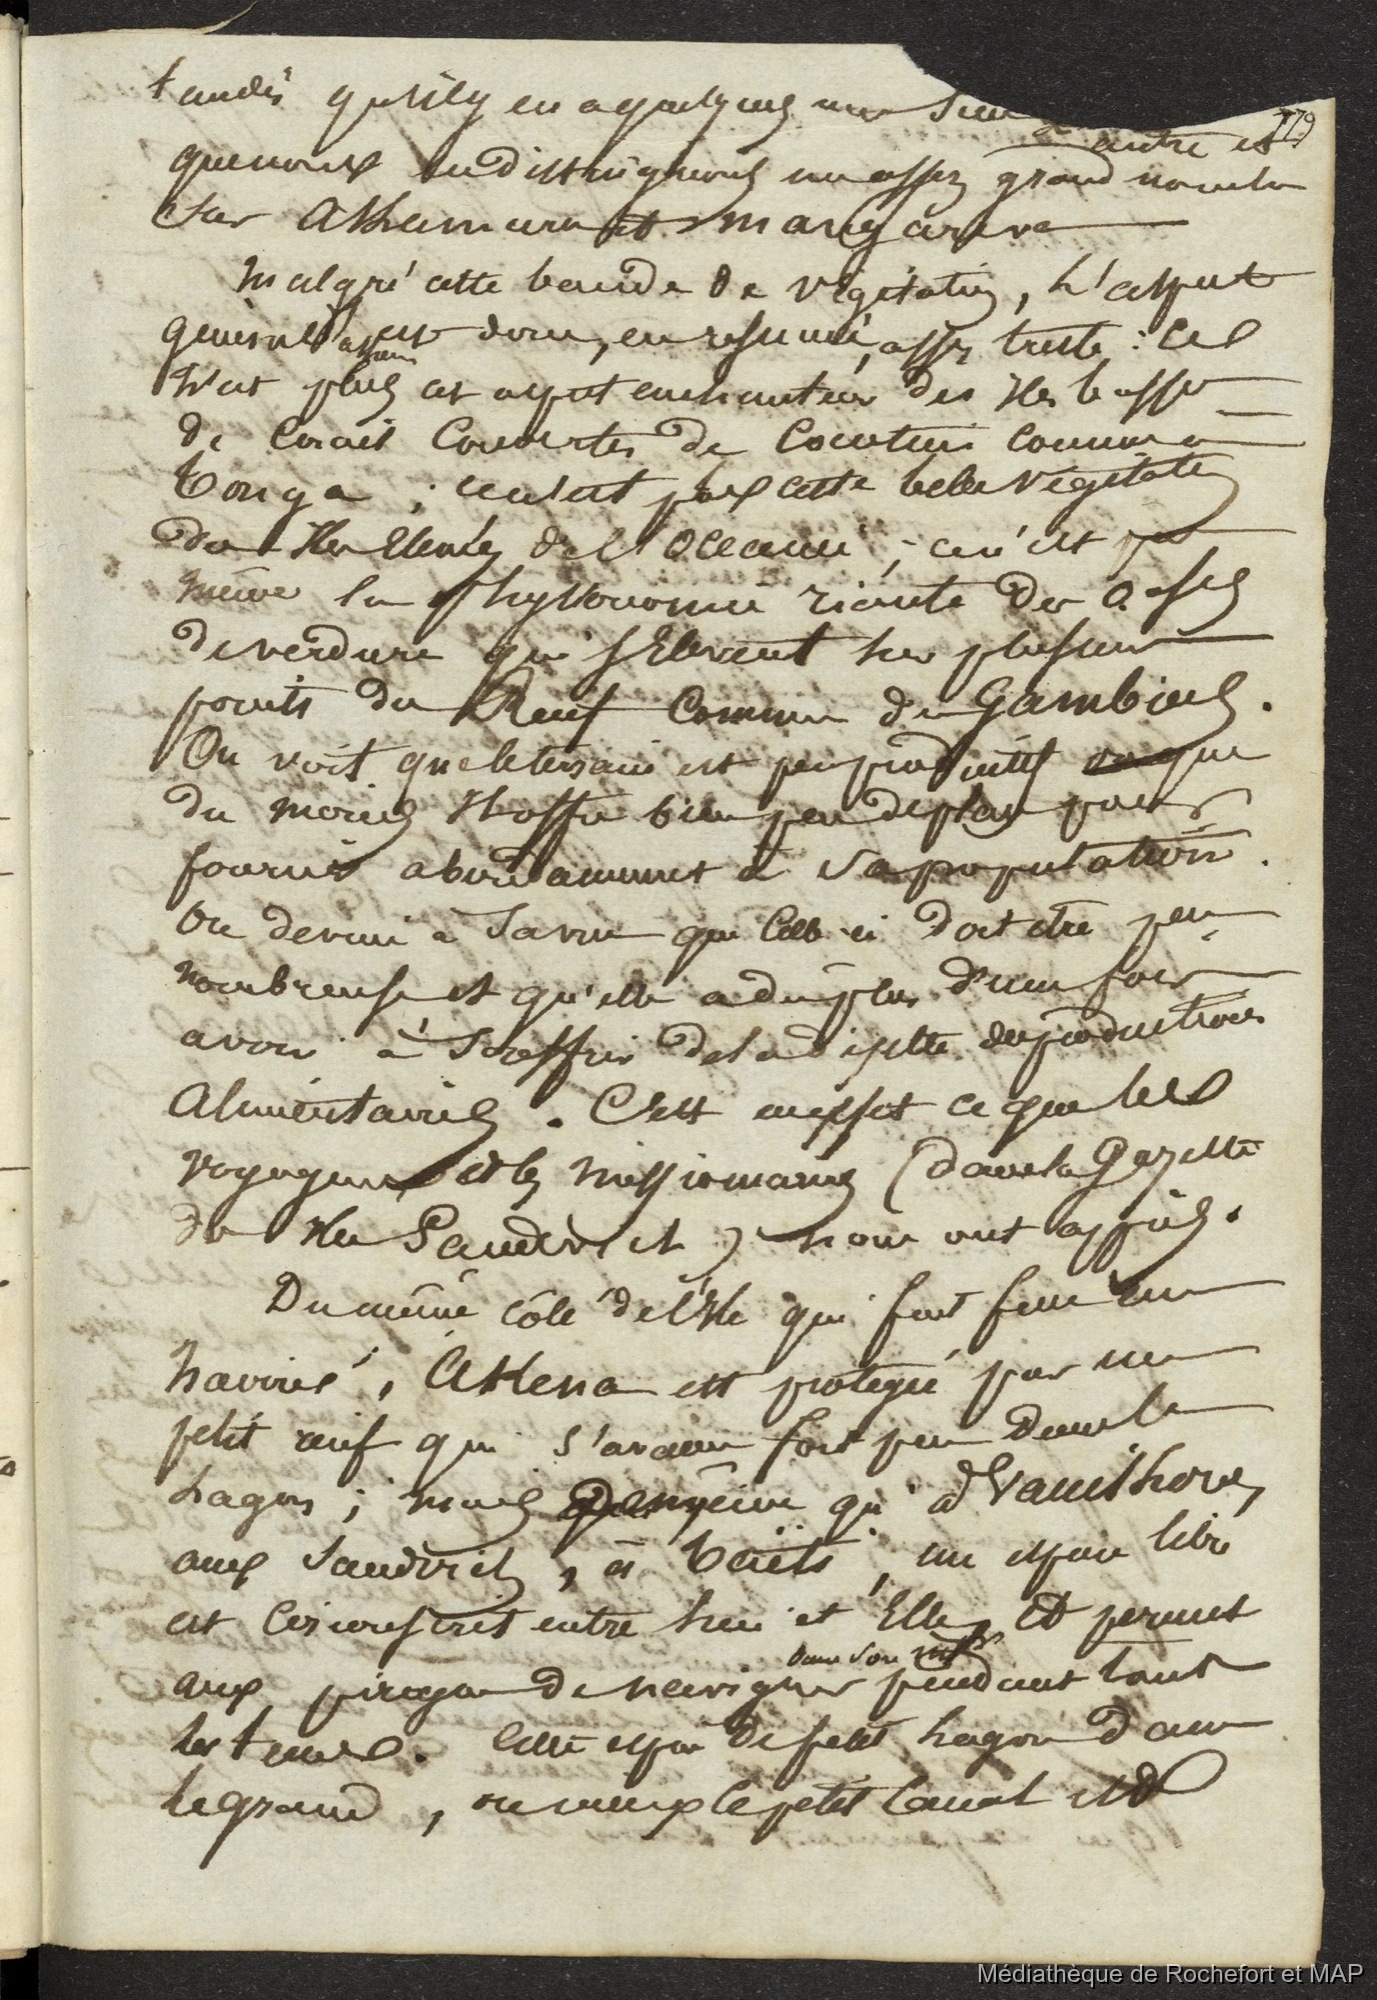 779
tandis qu'il y en a quelques uns sur
autre et
que nous en distinguions un assez grand nombre
sur et mangareva
Malgré cette bande de végétation, l'aspect
général est donc, en résumé, assez triste : Ce
n'est plus cet aspect enchanteur des iles basses
de Corail Couvertes de Cocotiers comme à
Tonga ; ce n'est pas cette belle végétation
des Iles Elevées de l'Oceanie ; ce n'est pas
même la physionomie riante des Oasis
de verdure qui s'Elevent sur plusieurs
points du Recif Comme des Gambiers.
On voit que le terrain est peu productif que
du moins il offre bien peu de place pour
fournir abondamment à sa population.
On devine à sa vue que Celle-ci doit être peu
nombreuse et qu'elle a du plus d'une fois
avoir à Souffrir de la disette des productions
Alimentaires. C'est en effet ce que les
voyageurs et les missionnaires (dans la Gazette
des Iles Sandwich) nous ont appris.
Du même côté de l'Ile qui fait face au
navires, Akena est protégé par un
petit recif qui s'avance fort peu dans le
Lagon ; mais de même qu'à Vanikoro,
aux Sandwich, à Taïti, un espace libre
est circonscrit entre lui et Elle, et permet
dans son
aux pirogues de naviguer pendant tout
les tems. Cette espèce de petit Lagon dans
le grand, ou mieux ce petit Canal est